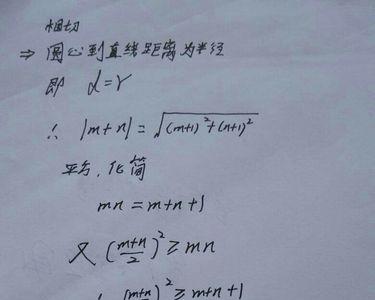 相切
⇒ 圆心到直线距离为半径
即 d=r
∴ |m+n| = √((m+1)²+(n+1)²)
平方，化简
mn = m+n+1
又 ((m+n)/2)² ≥ mn
∴ ((m+n)/2)² ≥ m+n+1